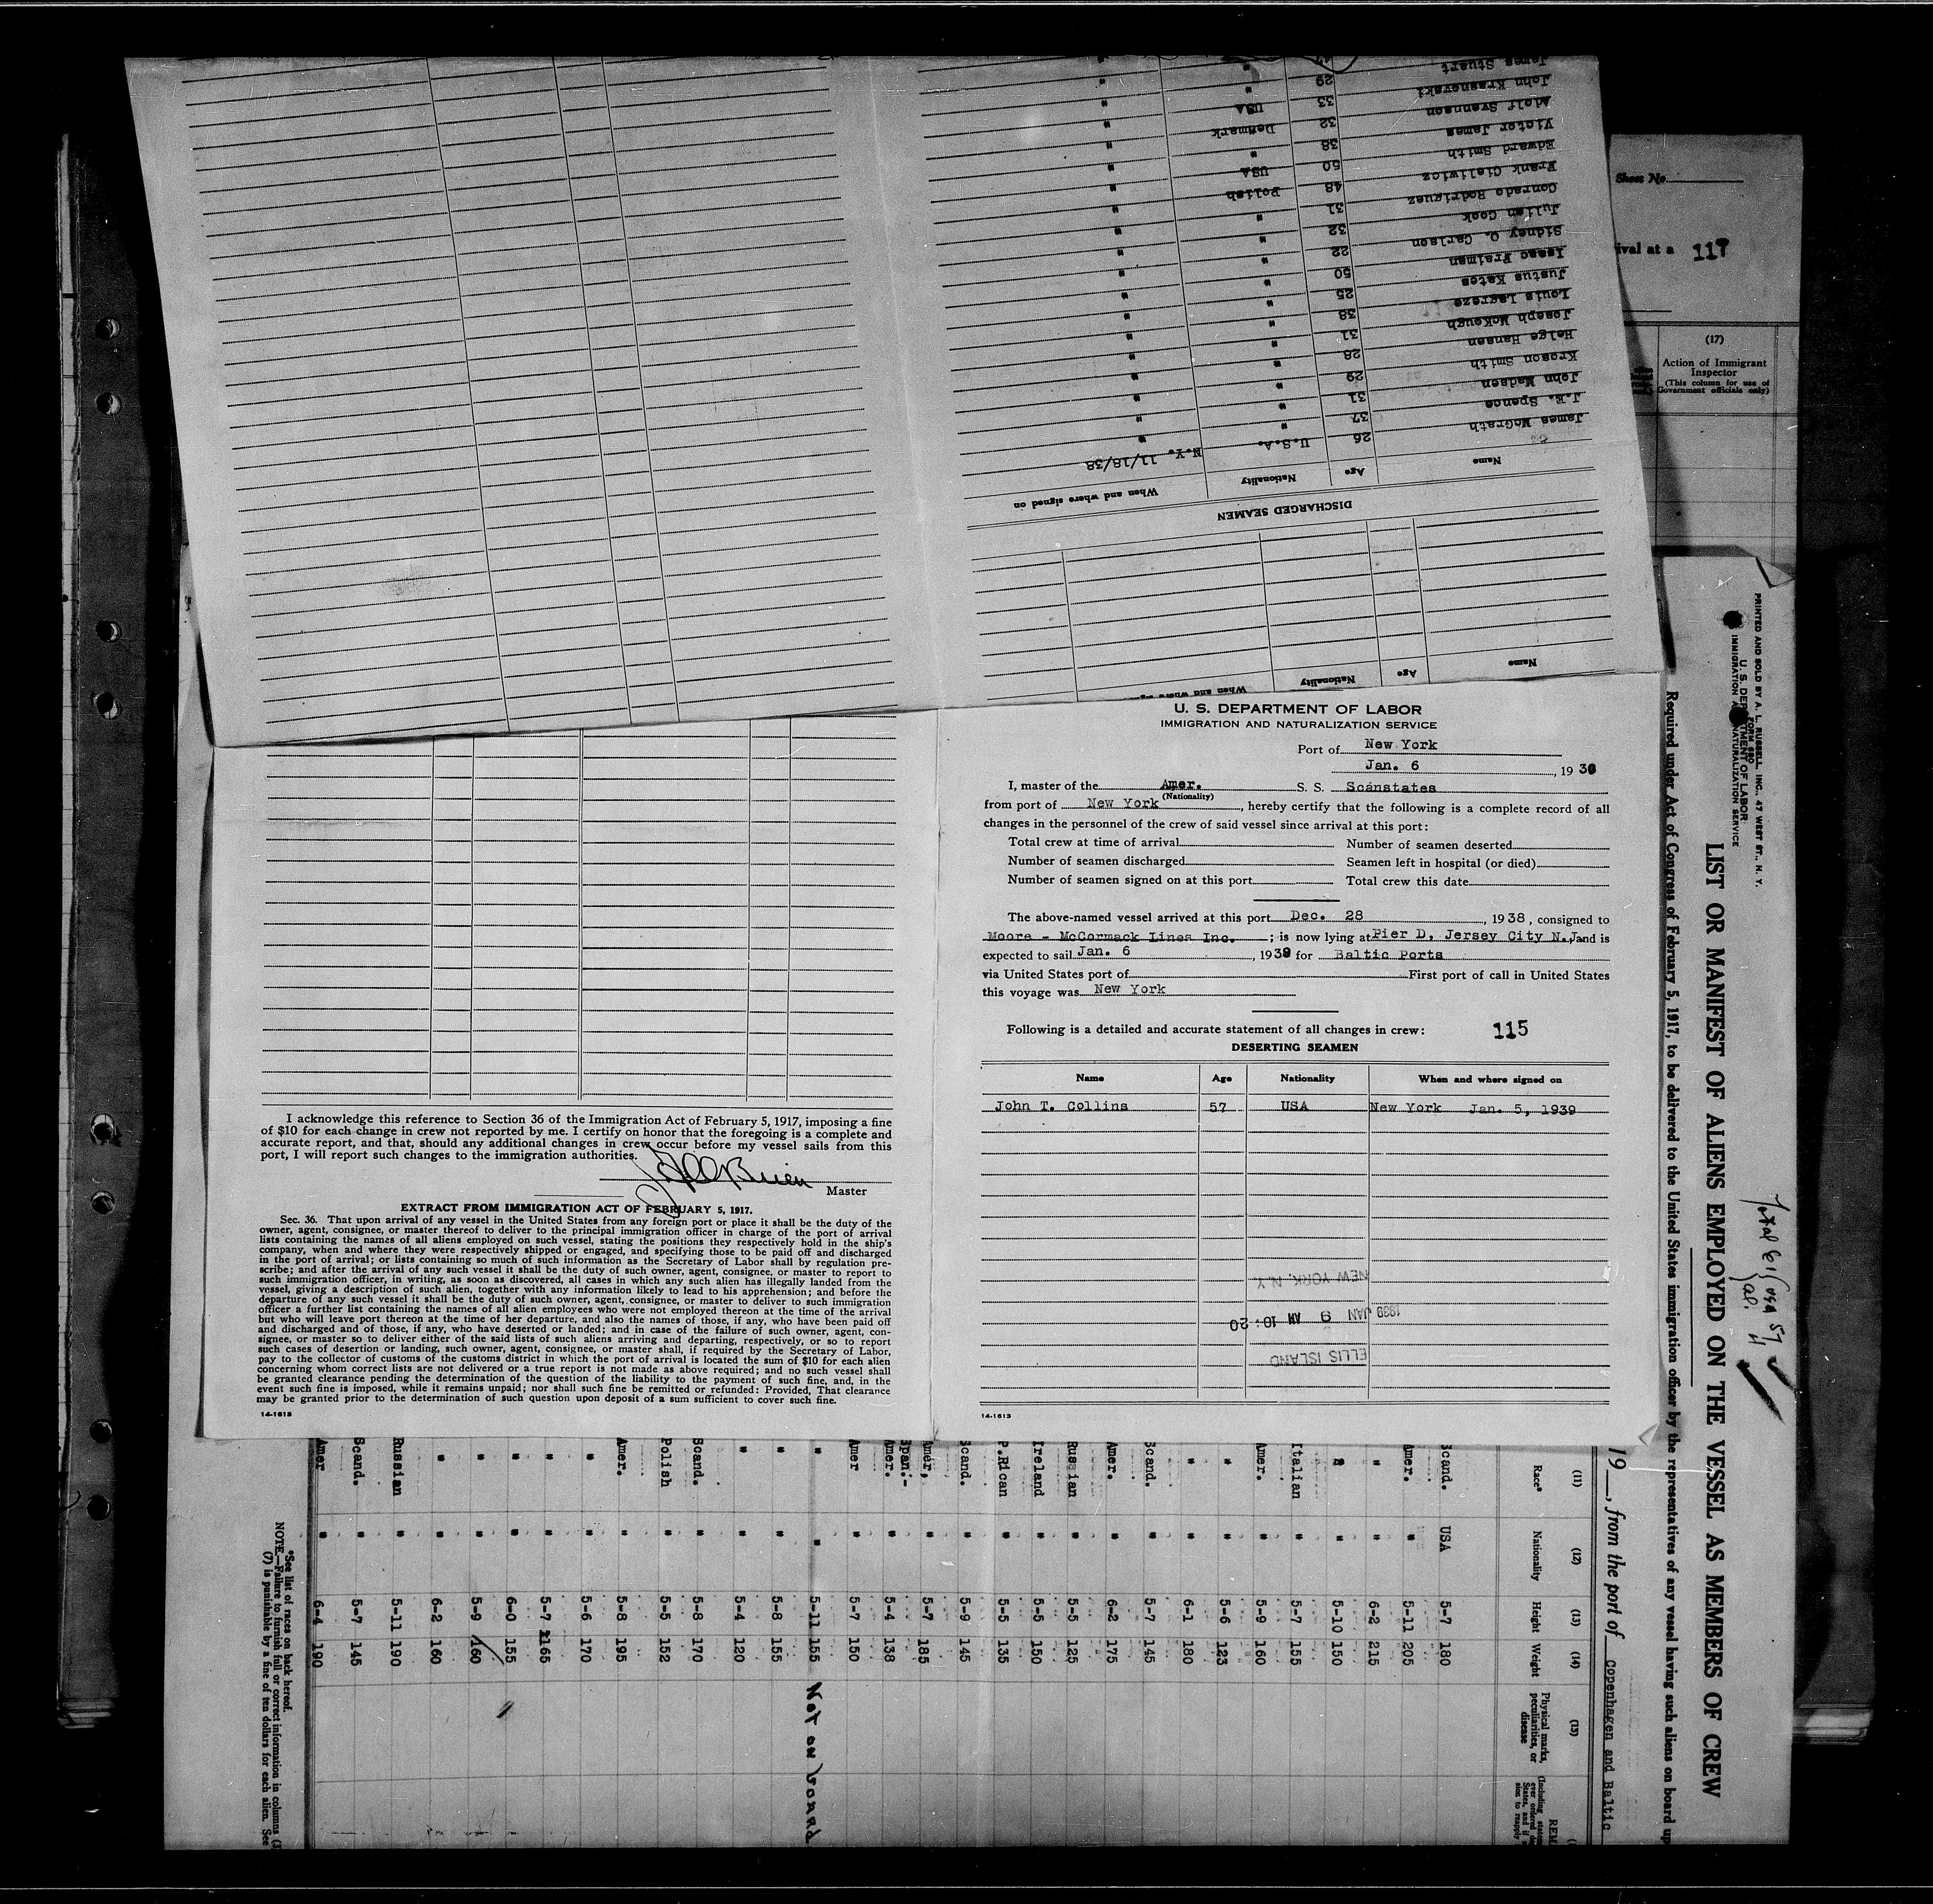 Name Age Nationality When and where signed on
DISCHARGED SEAMEN
Name Age Nationality When and where signed on
James McGrath 26 U.S.A. N.Y. 11/18/38
J.E. Spence 37 " "
John Madsen 31 " "
Kroson Smith 29 " "
Helge Hansen 28 " "
Joseph McKeough 31 " "
Louis Lagreze 38 " "
Justus Kates 25 " "
Isaac Fraiman 50 " "
Sidney O. Carlson 22 " "
Julian Cook 32 " "
Conrado Rodriguez 31 " "
Frank Cieliwicz 48 Polish "
Edward Smith 50 USA "
Victor James 38 " "
Adolf Svennson 32 Denmark "
John Krasnovski 33 USA "
James Stuart 29 " "
Sheet No.
ival at a 117
(17)
Action of Immigrant
Inspector
(This column for use of
Government officials only)
U. S. DEPARTMENT OF LABOR
IMMIGRATION AND NATURALIZATION SERVICE
Port of New York
Jan. 6, 1939
I, master of the Amer. S. S. Scanstates
(Nationality)
from port of New York, hereby certify that the following is a complete record of all
changes in the personnel of the crew of said vessel since arrival at this port:
Total crew at time of arrival Number of seamen deserted
Number of seamen discharged Seamen left in hospital (or died)
Number of seamen signed on at this port Total crew this date
The above-named vessel arrived at this port Dec. 28, 1938, consigned to
Moore - McCormack Lines Inc. ; is now lying at Pier D, Jersey City N.J. and is
expected to sail Jan. 6, 1939 for Baltic Ports
via United States port of First port of call in United States
this voyage was New York
Following is a detailed and accurate statement of all changes in crew: 115
DESERTING SEAMEN
Name Age Nationality When and where signed on
John T. Collins 57 USA New York Jan. 5, 1939
ELLIS ISLAND
1939 JAN 9 AM 10:20
NEW YORK, N.Y.
14-1613
I acknowledge this reference to Section 36 of the Immigration Act of February 5, 1917, imposing a fine
of $10 for each change in crew not reported by me. I certify on honor that the foregoing is a complete and
accurate report, and that, should any additional changes in crew occur before my vessel sails from this
port, I will report such changes to the immigration authorities.
Master
EXTRACT FROM IMMIGRATION ACT OF FEBRUARY 5, 1917.
Sec. 36. That upon arrival of any vessel in the United States from any foreign port or place it shall be the duty of the
owner, agent, consignee, or master thereof to deliver to the principal immigration officer in charge of the port of arrival
lists containing the names of all aliens employed on such vessel, stating the positions they respectively hold in the ship's
company, when and where they were respectively shipped or engaged, and specifying those to be paid off and discharged
in the port of arrival; or lists containing so much of such information as the Secretary of Labor shall by regulation pre-
scribe; and after the arrival of any such vessel it shall be the duty of such owner, agent, consignee, or master to report to
such immigration officer, in writing, as soon as discovered, all cases in which any such alien has illegally landed from the
vessel, giving a description of such alien, together with any information likely to lead to his apprehension; and before the
departure of any such vessel it shall be the duty of such owner, agent, consignee, or master to deliver to such immigration
officer a further list containing the names of all alien employees who were not employed thereon at the time of the arrival
but who will leave port thereon at the time of her departure, and also the names of those, if any, who have been paid off
and discharged and of those, if any, who have deserted or landed; and in case of the failure of such owner, agent, con-
signee, or master so to deliver either of the said lists of such aliens arriving and departing, respectively, or so to report
such cases of desertion or landing, such owner, agent, consignee, or master shall, if required by the Secretary of Labor,
pay to the collector of customs of the customs district in which the port of arrival is located the sum of $10 for each alien
concerning whom correct lists are not delivered or a true report is not made as above required; and no such vessel shall
be granted clearance pending the determination of the question of the liability to the payment of such fine, and, in the
event such fine is imposed, while it remains unpaid; nor shall such fine be remitted or refunded: Provided, That clearance
may be granted prior to the determination of such question upon deposit of a sum sufficient to cover such fine.
14-1613
PRINTED AND SOLD BY A. L. RUSSELL, INC., 47 WEST ST., N. Y.
FORM 680
U. S. DEPARTMENT OF LABOR
IMMIGRATION AND NATURALIZATION SERVICE
Total 61 USA 57
LIST OR MANIFEST OF ALIENS EMPLOYED ON THE VESSEL AS MEMBERS OF CREW
Required under Act of Congress of February 5, 1917, to be delivered to the United States immigration officer by the representatives of any vessel having such aliens on board up
19__, from the port of Copenhagen and Baltic
(11) (12) (13) (14) (15)
Race* Nationality Height Weight Physical marks, peculiarities, or disease
Scand. USA 5-7 180
Amer. " 5-11 205
" " 6-2 215
" " 5-10 150
Italian " 5-7 155
Amer. " 5-9 160
" " 5-6 123
" " 6-1 180
Scand. " 5-7 145
Amer. " 6-2 175
Russian " 5-5 125
Ireland " 5-5 150
P.Rican " 5-5 135
Scand. " 5-9 145
Amer, " 5-7 185
Span.-Amer. " 5-4 138
Amer " 5-7 150
" " 5-11 155 Not on board
" " 5-8 155
" " 5-4 120
Scand. " 5-8 170
Polish " 5-5 152
Amer. " 5-8 195
" " 5-6 170
" " 5-7 165
" " 6-0 155
" " 5-9 160
" " 6-2 160
Russian " 5-11 190
Scand. " 5-7 145
Amer " 6-4 190
*See list of races on back hereof.
NOTE.—Failure to furnish full or correct information in columns (3
(7) is punishable by a fine of ten dollars for each alien. See